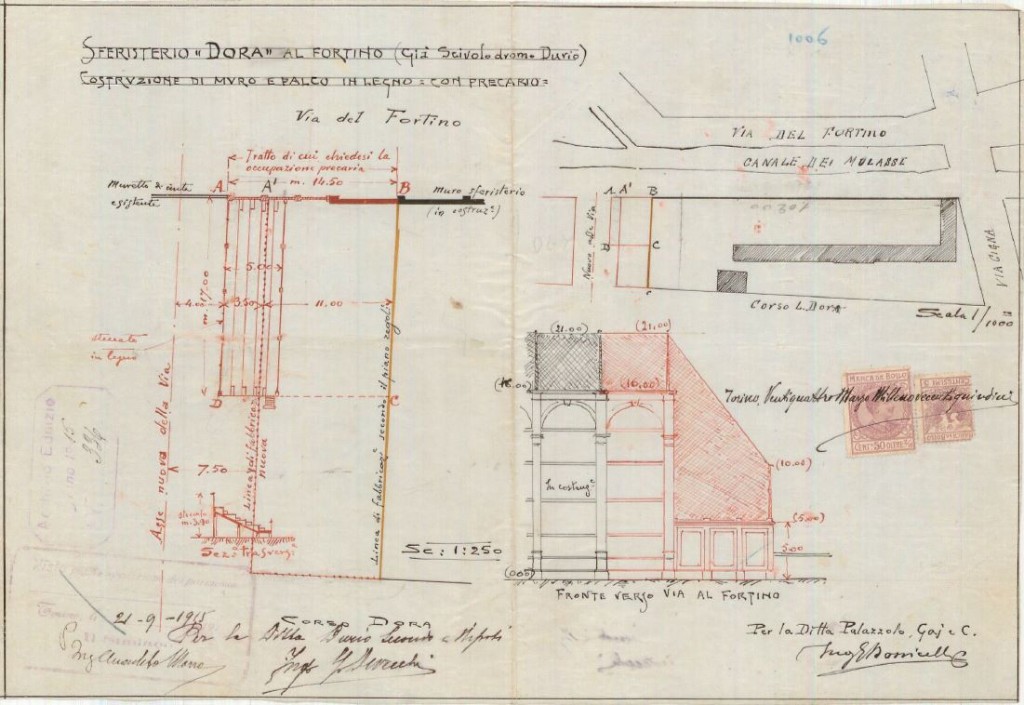 SFERISTERIO "DORA" AL FORTINO (Già Scivolodromo Durio)
COSTRUZIONE DI MURO E PALCO IN LEGNO = CON PRECARIO =
1006
Via del Fortino
Tratto di cui chiedesi la
occupazione precaria
m. 14.50
A
A'
B
Muretto di cinta
esistente
muro sferisterio
(in costruz.e)
m. 17.00
5.00
4.00
3.50
11.00
steccato
in legno
D
C
Asse nuovo della Via
Linea di fabbricaz.
nuova
Linea di fabbricaz. secondo il piano regol.
7.50
steccato
m. 3.90
Sez: trasvers.
Sc: 1:250
CORSO DORA
VIA DEL FORTINO
CANALE DEI MOLASSE
A A' B
C
Nuova alla Via
00207
VIA CIGNA
CORSO L. DORA
Scala 1/1000
(21.00)
(21.00)
(16.00)
(16.00)
(10.00)
(5.00)
5.00
(0.00)
In costruz.e
FRONTE VERSO VIA AL FORTINO
Torino, Ventiquattro Marzo Millenovecentoquindici
MARCA DA BOLLO
CENT. 50 CENT.
21-9-1915
Per la Ditta Durio Secondo e Nipoti
Per la Ditta Palazzolo, Goj e C.